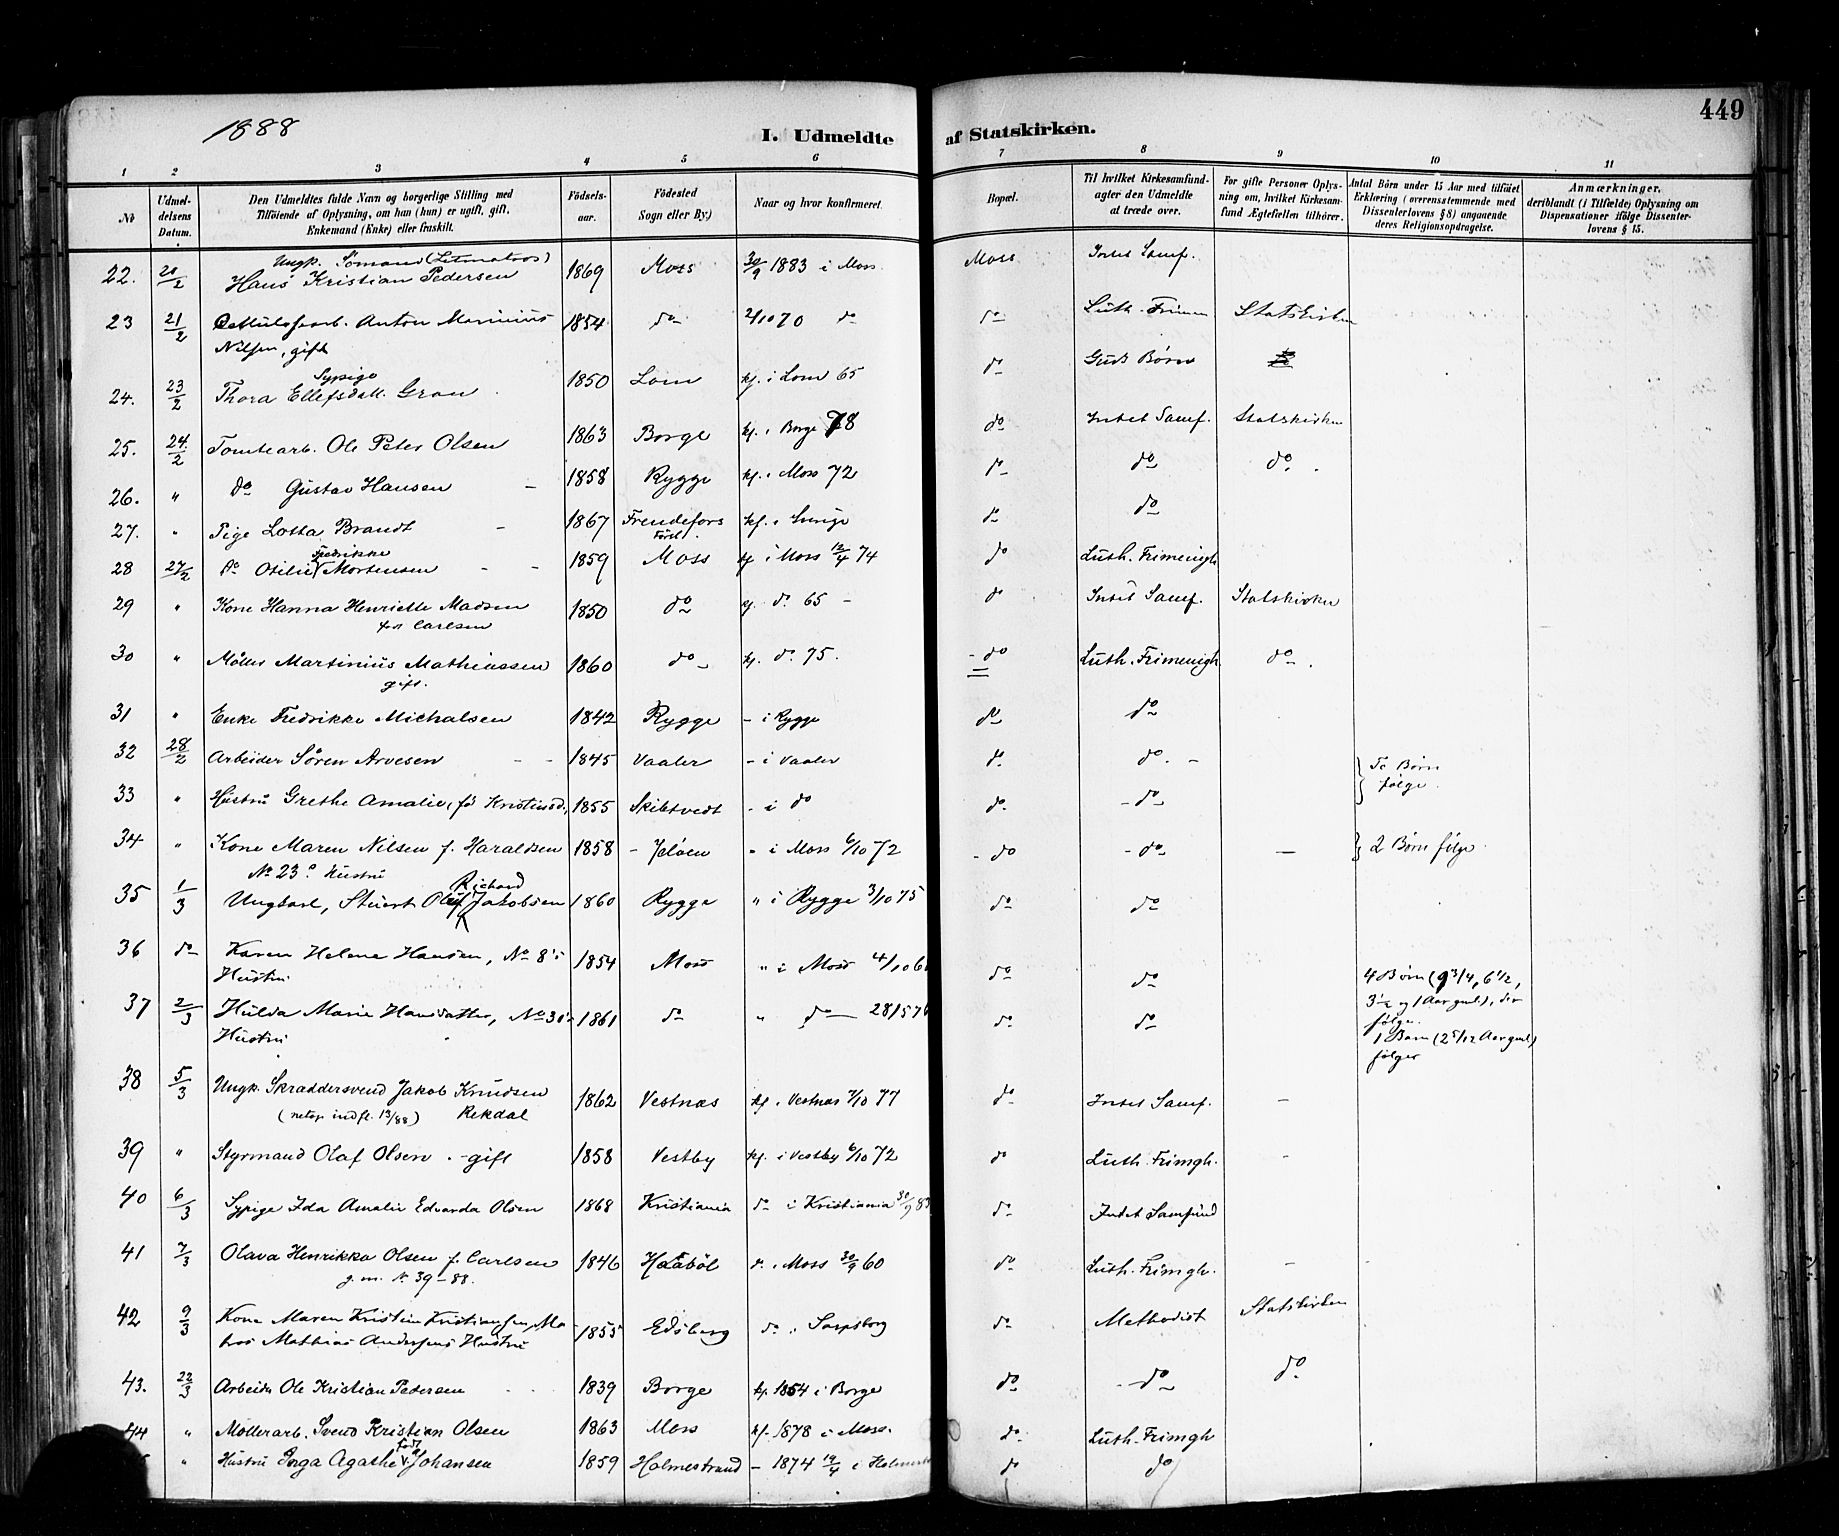 449
1888
I. Udmeldte af Statskirken.
1 2 3 4 5 6 7 8 9 10 11
No
Udmel-
delsens
Datum.
Den Udmeldtes fulde Navn og borgerlige Stilling med
Tilföiende af Oplysning, om han (hun) er ugift, gift,
Enkemand (Enke) eller fraskilt.
Födsels-
aar.
Födested
Sogn eller By.)
Naar og hvor konfirmeret.
Bopæl.
Til hvilket Kirkesamfund
agter den Udmeldte
at træde over.
For gifte Personer Oplys-
ning om, hvilket Kirkesam-
fund Ægtefællen tilhörer.
Antal Börn under 15 Aar med tilföiet
Erklæring (overensstemmende med
Dissenterlovens § 8) angaaende
deres Religionsopdragelse.
Anmærkninger,
deriblandt (i Tilfælde) Oplysning om
Dispensationer ifölge Dissenter-
lovens § 15.
Ungk. Sömand (Letmatros)
22. 20/2 Hans Kristian Pedersen 1869 Moss 30/9 1883 i Moss. Moss Intet Samf.
23 21/2 Anton Marinius 1854 do 2/10 70 do do Luth. Frimen Statskirken
Nilsen, gift
Sypige
24. 23/2 Thora Ellefsdatt. Gran 1850 Lom kf. i Lom 65 do Guds Börn
25. 24/2 Tomtearb. Ole Peter Olsen 1863 Borge kf. i Borge 78 do Intet Samf. Statskirken
26. " do Gustav Hansen 1858 Rygge kf. i Moss 72 do do do.
27. " Pige Lotta Brandt 1867 Frendefors kf. i Sverige do do
Fredrikke
28 27/2 do Otilie Mortensen 1859 Moss kf i Moss 12/4 74 do Luth. Frimenigh
29 " Kone Hanna Henriette Madsen 1850 do kf. do 65 do Intet Samf. Statskirken
född Carlsen
30 " Möller Martinius Mathiassen 1860 do kf. do 75. do Luth. Frimenigh do
gift.
31 " Enke Fredrikke Michalsen 1842 Rygge - i Rygge do do
32 28/2 Arbeider Sören Arvesen 1845 Vaaler - i Vaaler do do. To Börn
fölge.
33 " Hustru Grethe Amalie, fö Kristiansd. 1855 Skibtvedt - i do do. do
34 " Kone Maren Nilsen f. Haraldsen 1858 Jelöen " i Moss 6/10 72 do do 2 Börn fölge.
No 23s Hustru
Richard
35 1/3 Ungkarl, Stuert Oluf Jakobsen 1860 Rygge " i Rygge 3/10 75 do do
36 do Karen Helene Hansen, No 8's 1854 Moss " i Moss 4/10 6 do do 4 Börn (9 3/4, 6 1/2,
Hustru 3 1/2 og 1 Aar gml), der
fölge.
37 2/3 Hulda Marie Hansdatter, No 30's 1861 do " do 28/5 76 do do 1 Barn (2 5/12 Aar gml)
Hustru fölger
38 5/3 Ungk. Skraddersvend Jakob Knudsen 1862 Vestnæs kf. i Vestnæs 7/10 77 do Intet Samf.
(netop indfl. 13/88) Rekdal
39 " Styrmand Olaf Olsen - gift 1858 Vestby kf. i Vestby 6/10 72 do Luth. Frimgh.
40 6/3 Sypige Ida Amalie Edvarda Olsen 1868 Kristiania do i Kristiania 30/9 83 do Intet Samfund
41 7/3 Olava Henrikka Olsen f. Carlsen 1846 Haabøl do i Moss 30/9 60 do Luth. Frimgh.
g. m. No 39-88.
42 9/3 Kone Maren Kristine Kristiansen, Ma- 1855 Edsberg do i Sarpsborg do Methodist Statskirken
tros Mathias Andersens Hustru
43. 22/3 Arbeider Ole Kristian Pedersen 1839 Borge kf. 1854 i Borge do do do
44 " Möllerarb. Svend Kristian Olsen 1863 Moss kf. 1878 i Moss. do Luth. Frimgh
född
" Hustru Inga Agathe Johansen 1859 Holmestrand - 1874 12/4 i do do